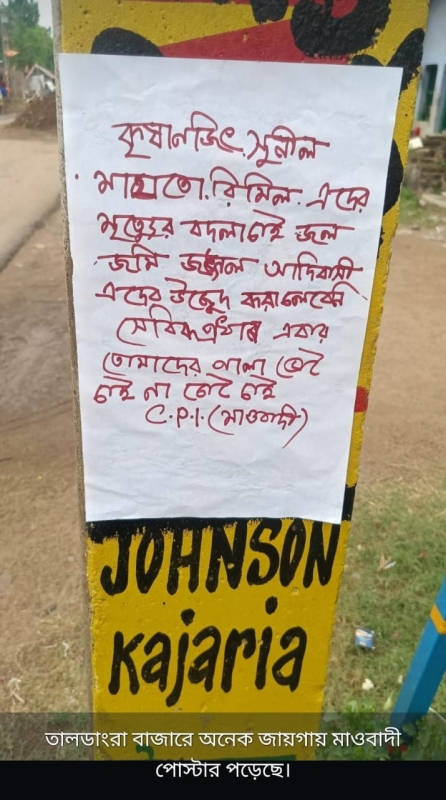 কৃষানজিৎ. সুনীল
মাহাতো. বিমিল. এদের
মৃত্যুর বদলা চাই জল
জমি জঙ্গল আদিবাসী
এদের উচ্ছেদ করা চলবেনি
একবার
তোমাদের পালা ভোট
চাই না ভোট চাই
C.P.I. (মাওবাদী)
JOHNSON
Kajaria
তালডাংরা বাজারে অনেক জায়গায় মাওবাদী
পোস্টার পড়েছে।